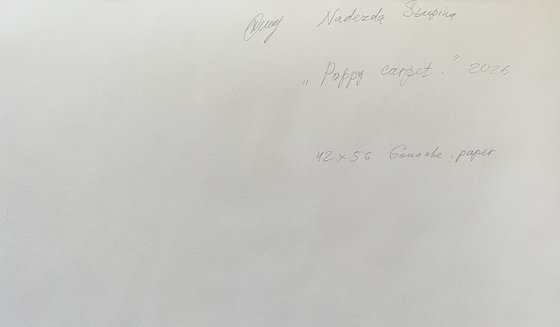 Nadezda Stupina
„Poppy carpet." 2026
42 x 56 Gouache, paper